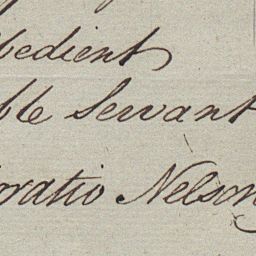 bedient
ble Servant
oratio Nelson